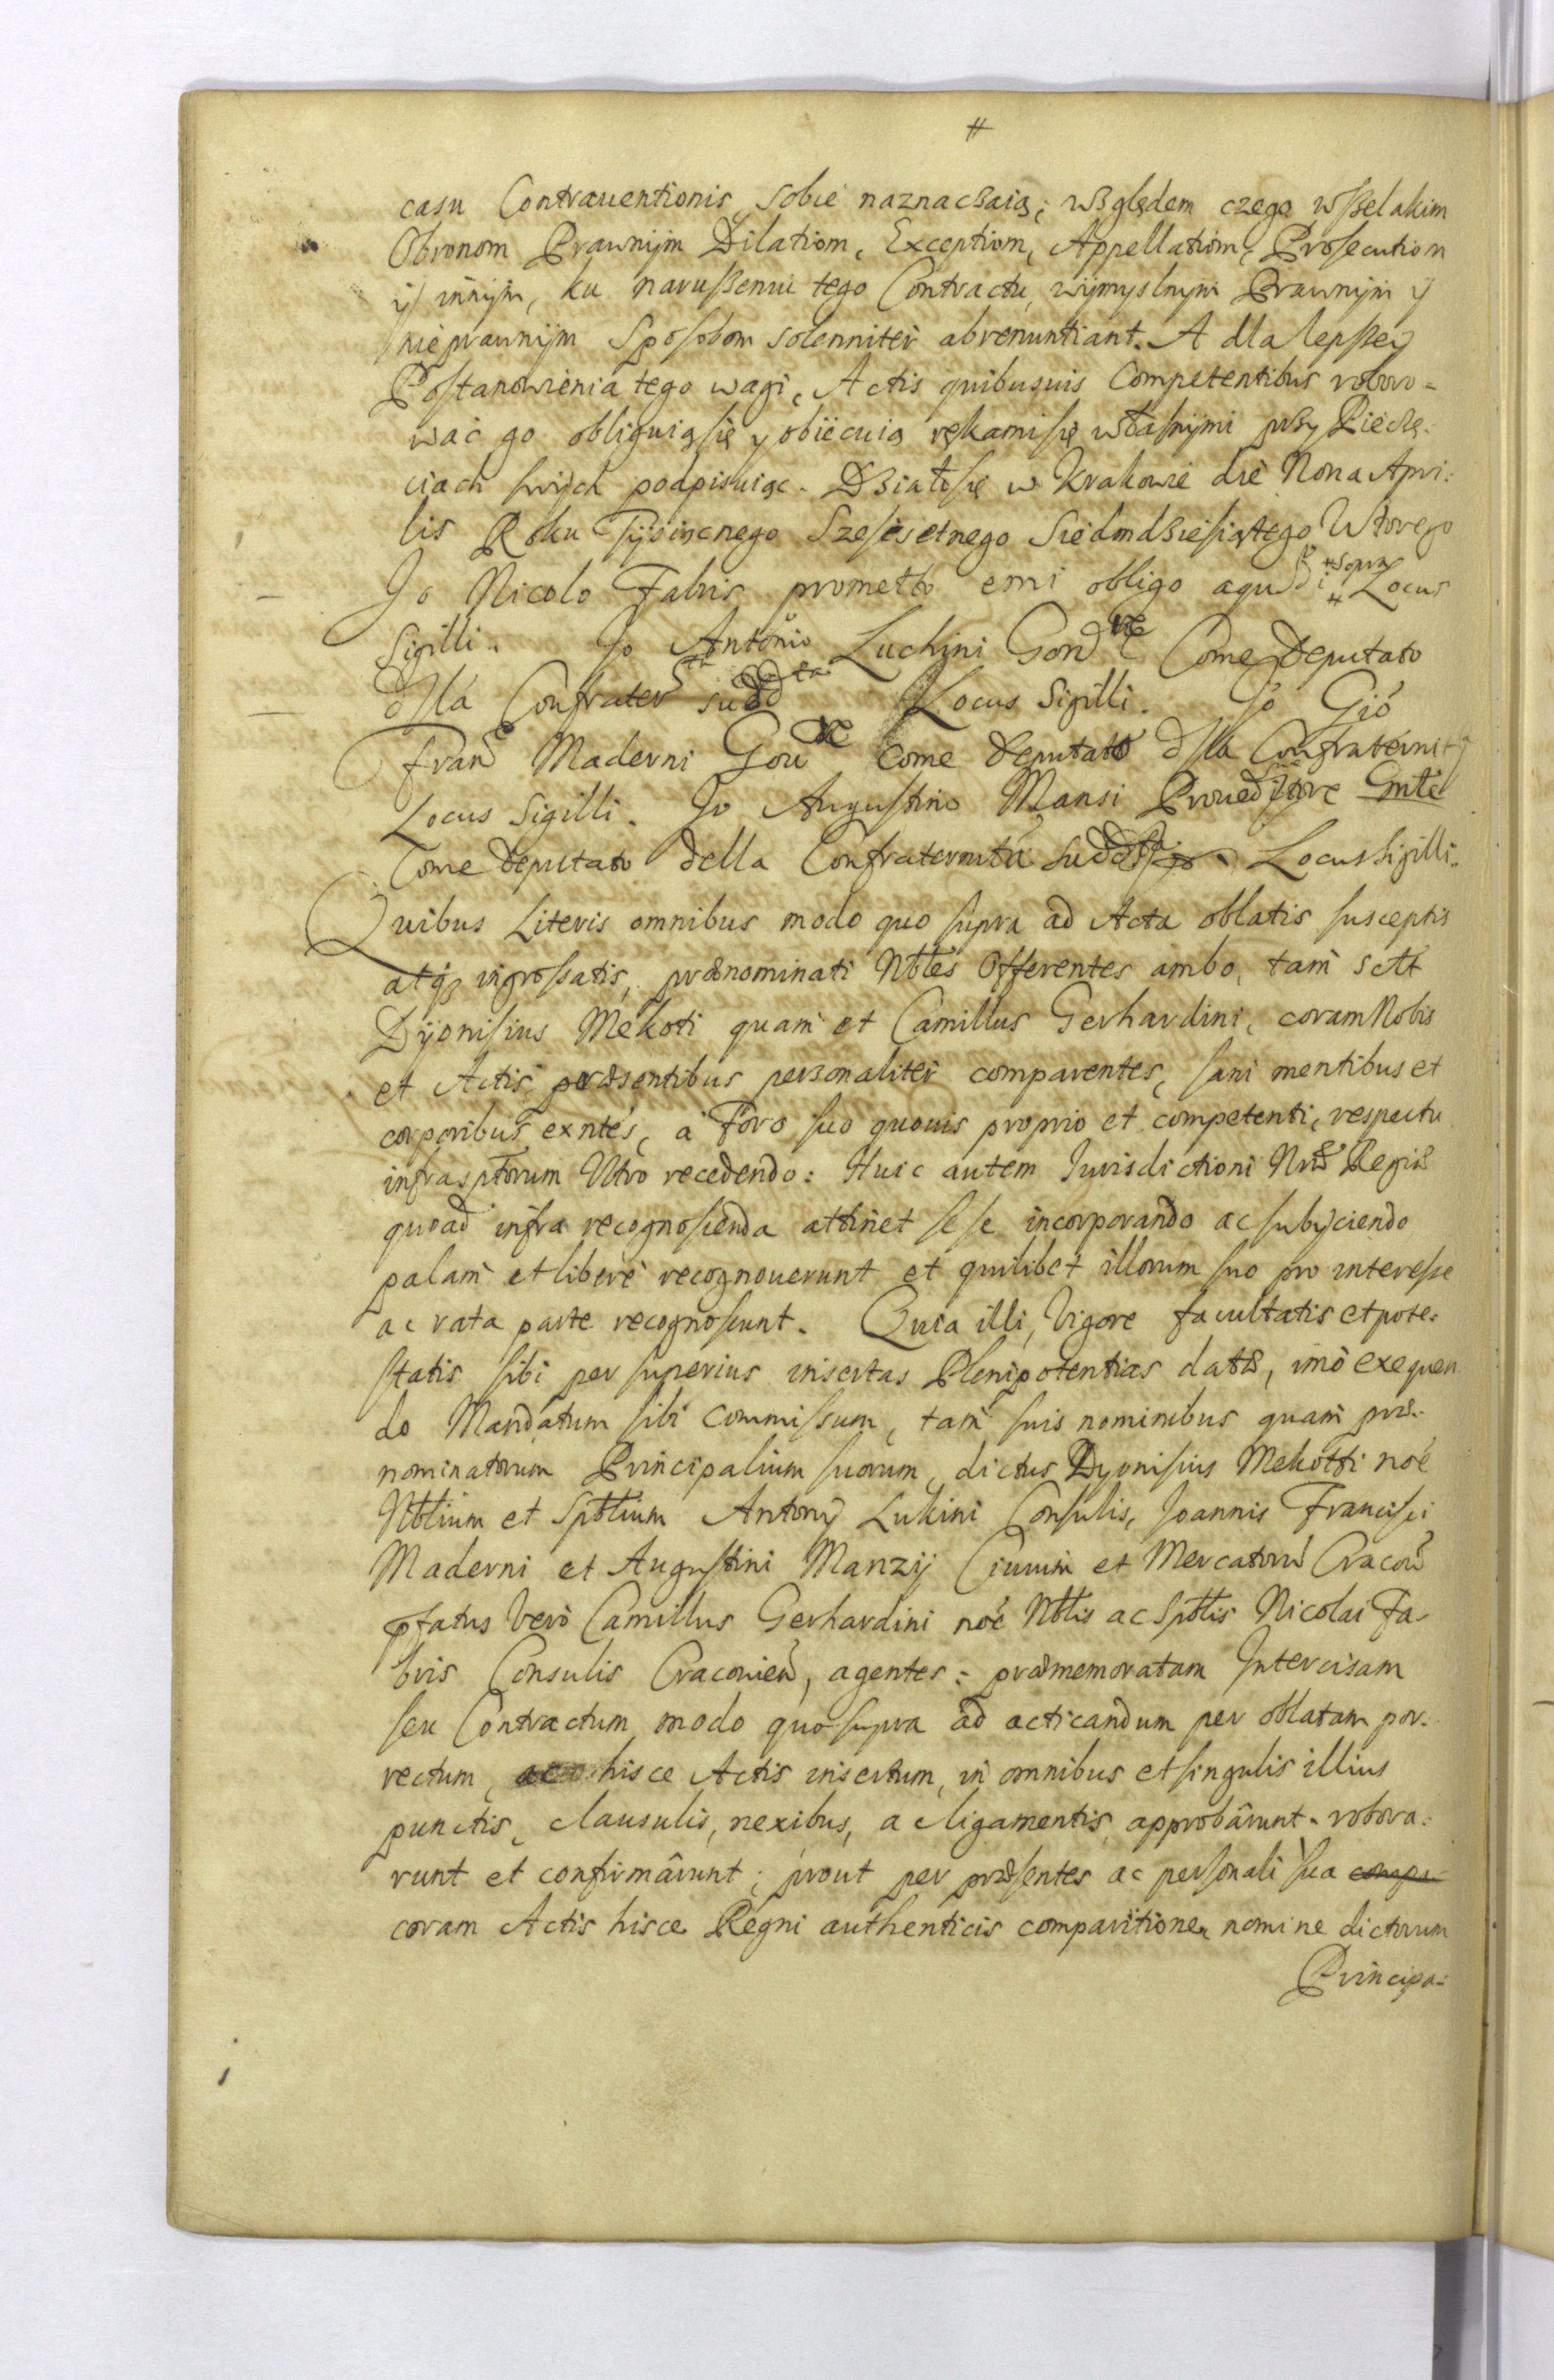 #
casu Contrauentionis sobie naznacżaią; wżględem czego wßelakim
Obronom Prawnÿm Dilatiom, Exceptiom, Appellatiom, Prosecutiom
ÿ innÿm, ku narußeniu tego Contractu, wÿmyslnym Prawnÿm y
nieprawnÿm Sposobom solenniter abrenuntiant. A dla lepßey
Postanowienia tego wagi, Actis quibusuis Competentibus roboro=
wać go obliguią się y obiecuią rękami się własnÿmi przy Pieczę-
ciach swÿch podpisuiąc. Działo się w Krakowie die Nona Apri:
lis Roku Tÿsiącnego Szescsetnego Siedmdżiesiątego Wtorego
Jo Nicolo Fabris prometto emi obligo aqu di # sopra # Locus
Sigilli. Jo Antonio Luchini Gon re Come Deputato
dlla Confrater ta sudd ta Locus Sigilli. Jo Gió
Fran Maderni Gou re come Deputato dlla Confraternitÿ
Locus Sigilli. Jo Augustino Mansi Proueditore Gnte
Come Deputato della Confraternità sudd Locus Sigilli.
Quibus Literis omnibus modo quo supra ad Acta oblatis susceptis
atq₃ ingrossatis, prænominati Nbles Offerentes ambo, tam sctt
Dÿonisius Mekoti quam et Camillus Gerhardini, coram Nobis
et Actis præsentibus personaliter comparentes, sani mentibus et
corporibus exntes, à Foro suo quouis proprio et competenti, respectu
infrasptorum Vltro recedendo: Huic autem Jurisdictioni Nræ Regiæ
quoad infra recognoscenda attinet sese incorporando ac subÿciendo
palam et liberè recognouerunt et quilibet illorum suo pro interesse
ac rata parte recognoscunt. Quia illi, Vigore facultatis et pote:
statis sibi per superius insertas Plenipotentias datæ, imò exequen
do Mandatum sibi commissum, tam suis nominibus quam præ-
nominatorum Principalium suorum, dictus Dyonisius Mekotti noe
Nblium et Spblium Antonÿ Lukini Consulis, Joannis Francisci
Maderni et Augustini Manzÿ Ciuium et Mercatoru Cracou
pfatus Verò Camillus Gerhardini noe Nblis ac Spblis Nicolai Fa-
bris Consulis Cracouien, agentes: præmemoratam Intercisam
seu Contractum modo quo supra ad acticandum per oblatam por-
rectum, ac hisce Actis insertum, in omnibus et singulis illius
punctis, clausulis, nexibus, ac ligamentis approbârunt, robora:
runt et confirmârunt; prout per præsentes ac personali sua compa-
coram Actis hisce Regni authenticis comparitione, nomine dictorum
Principa=